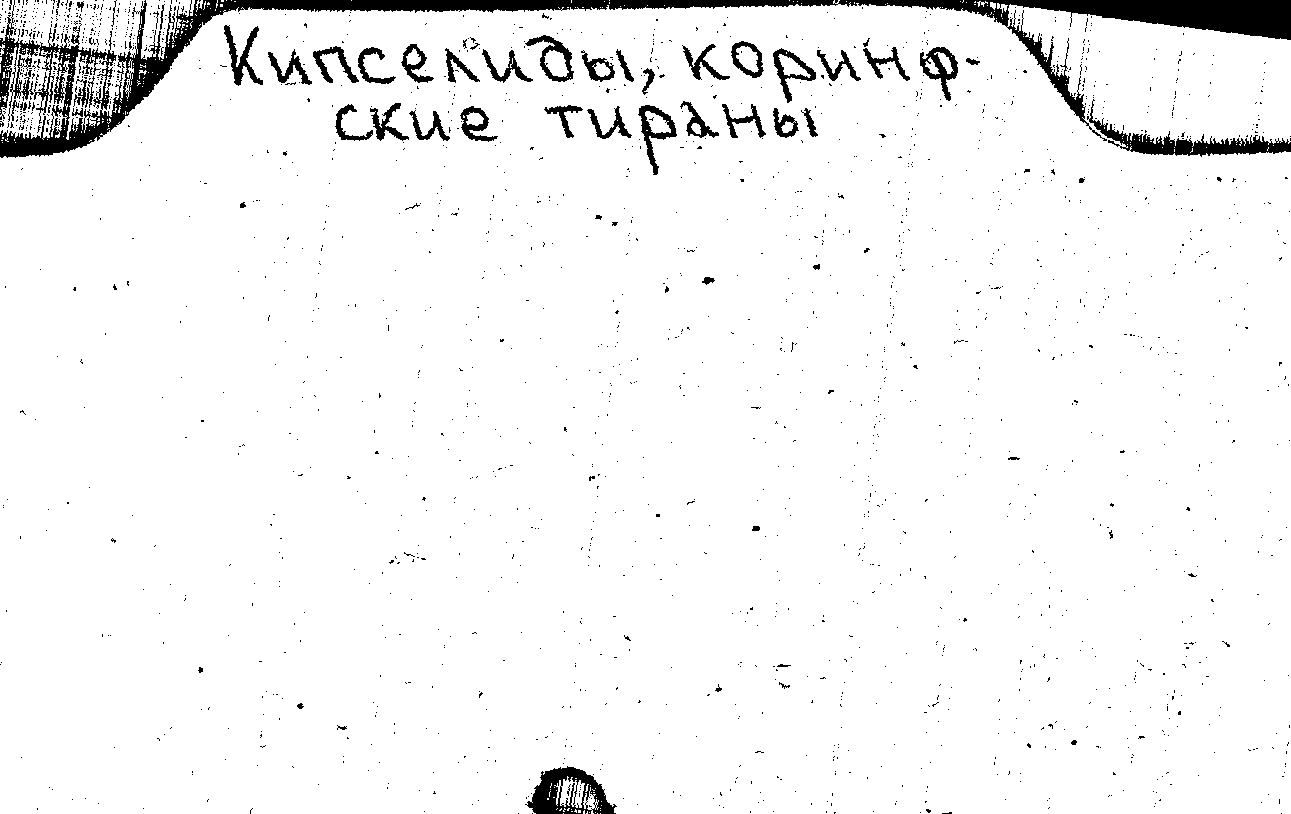 Кипселиды, коринф-
ские тираны